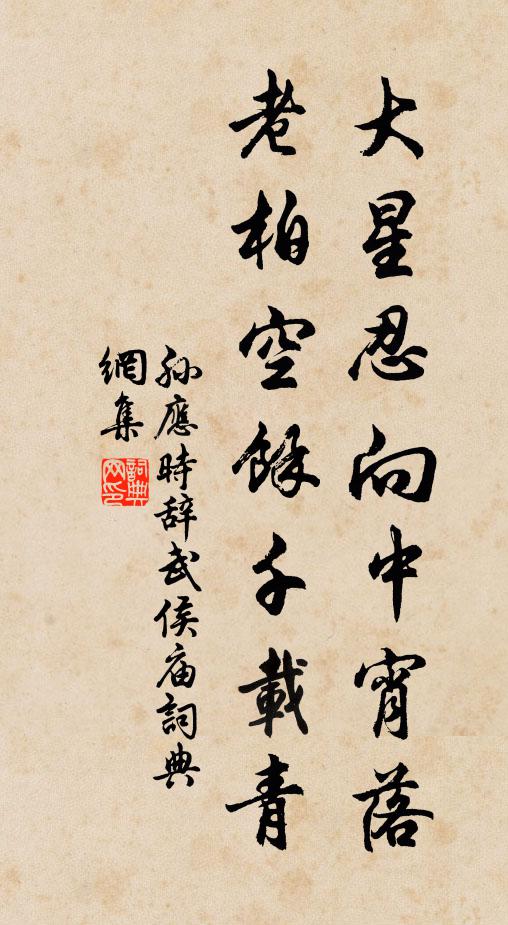 大星忍向中宵落
老柏空餘千載青
孙應時辞武侯庙詞典
網集
詞典网印